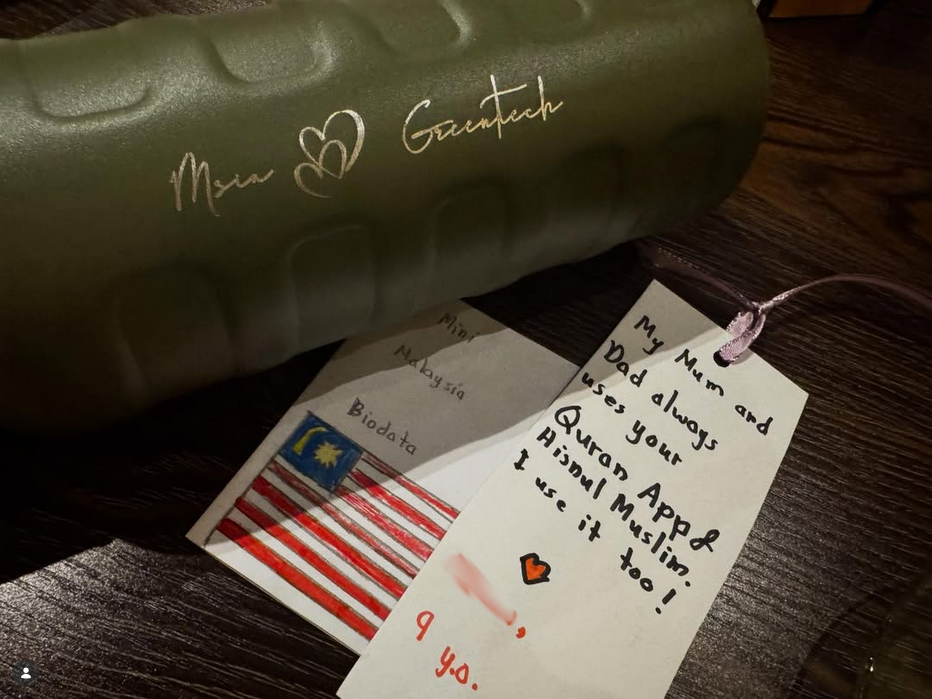 Msia Greentech
Mini
Malaysia
Biodata
My Mum and
Dad always
uses your
Quran App &
Hisnul Muslim.
I use it too!
9
y.o.